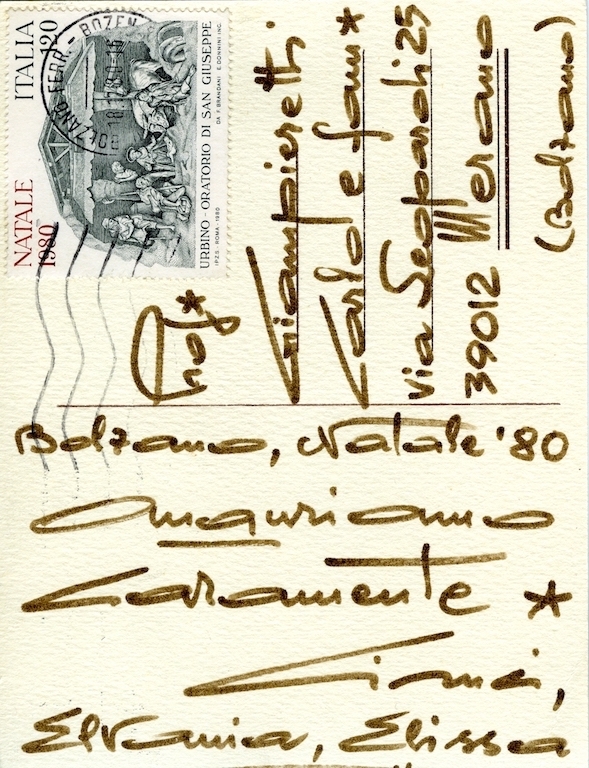 NATALE
1980
ITALIA
120
URBINO - ORATORIO DI SAN GIUSEPPE
I.P.Z.S. - ROMA - 1980
DA F. BRANDANI E. DONNINI INC.
Prof*
Giampieretti
Carlo e fam*
via Leopardi 25
39012 Merano
(Bolzano)
Bolzano, Natale '80
Auguriamo
Caramente *
Elvania, Elissa